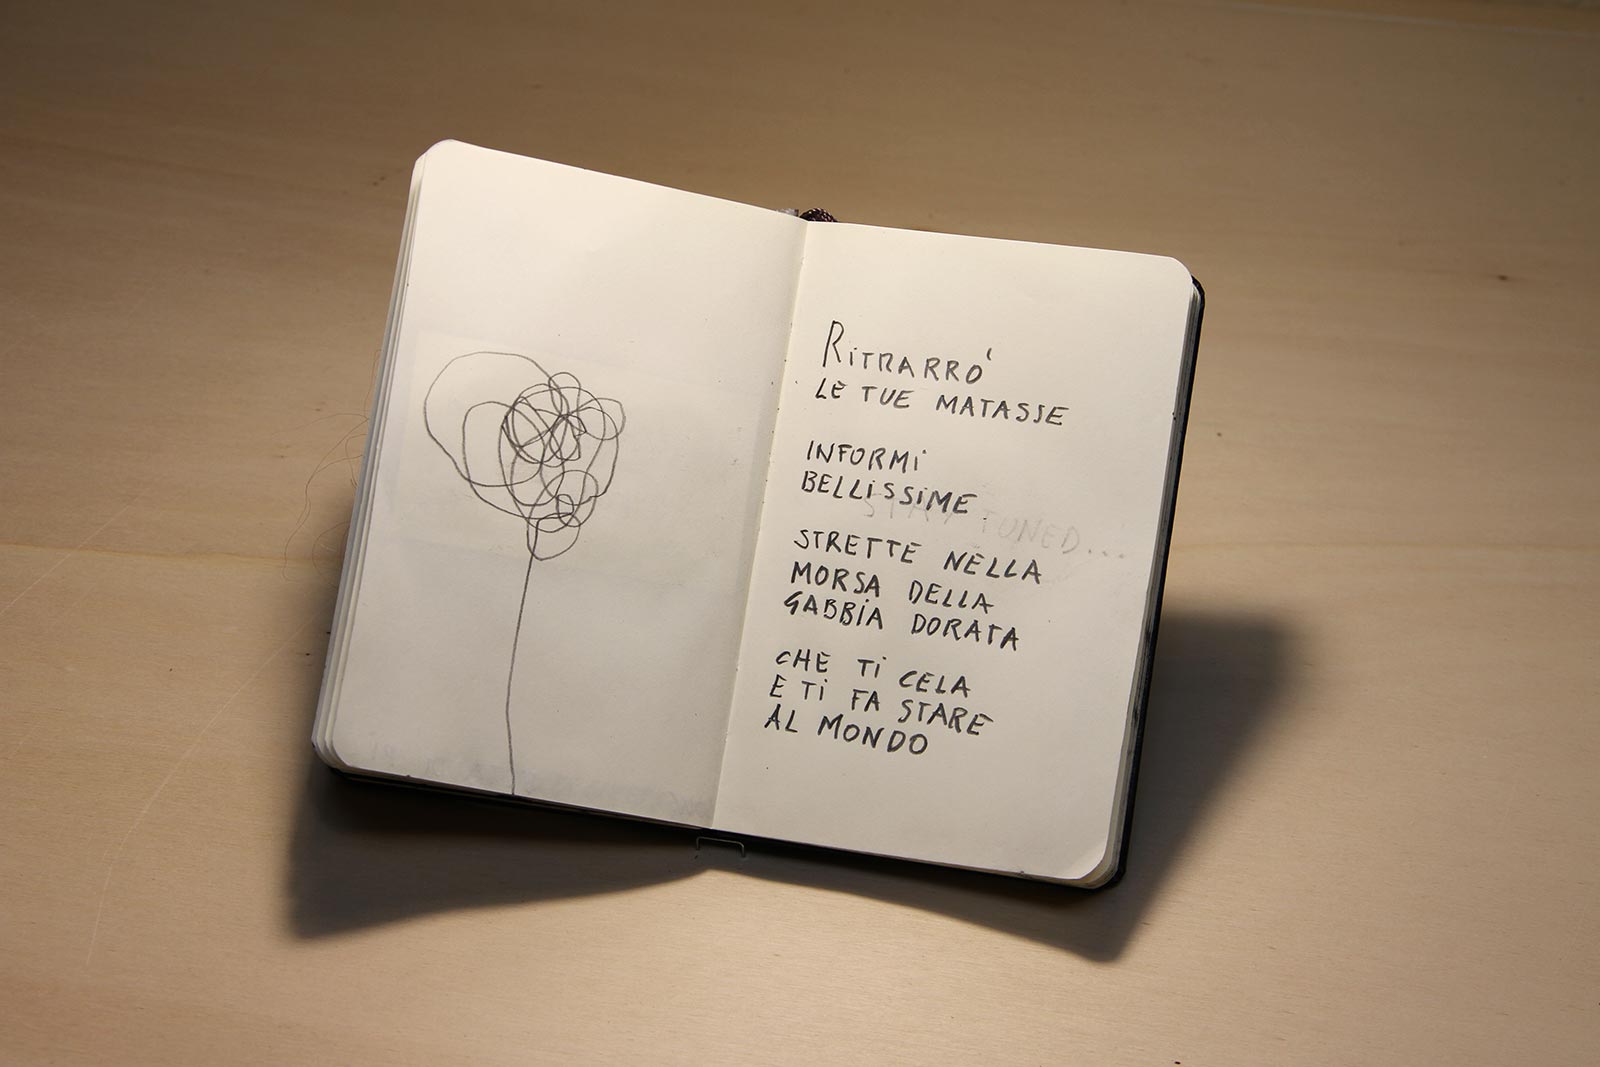 RiTRARRO'
LE TUE MATASSE
INFORMi
BELLiSSiME.
STAY TUNED...
STRETTE NELLA
MORSA DELLA
GABBiA DORATA
CHE Ti CELA
E Ti FA STARE
AL MONDO